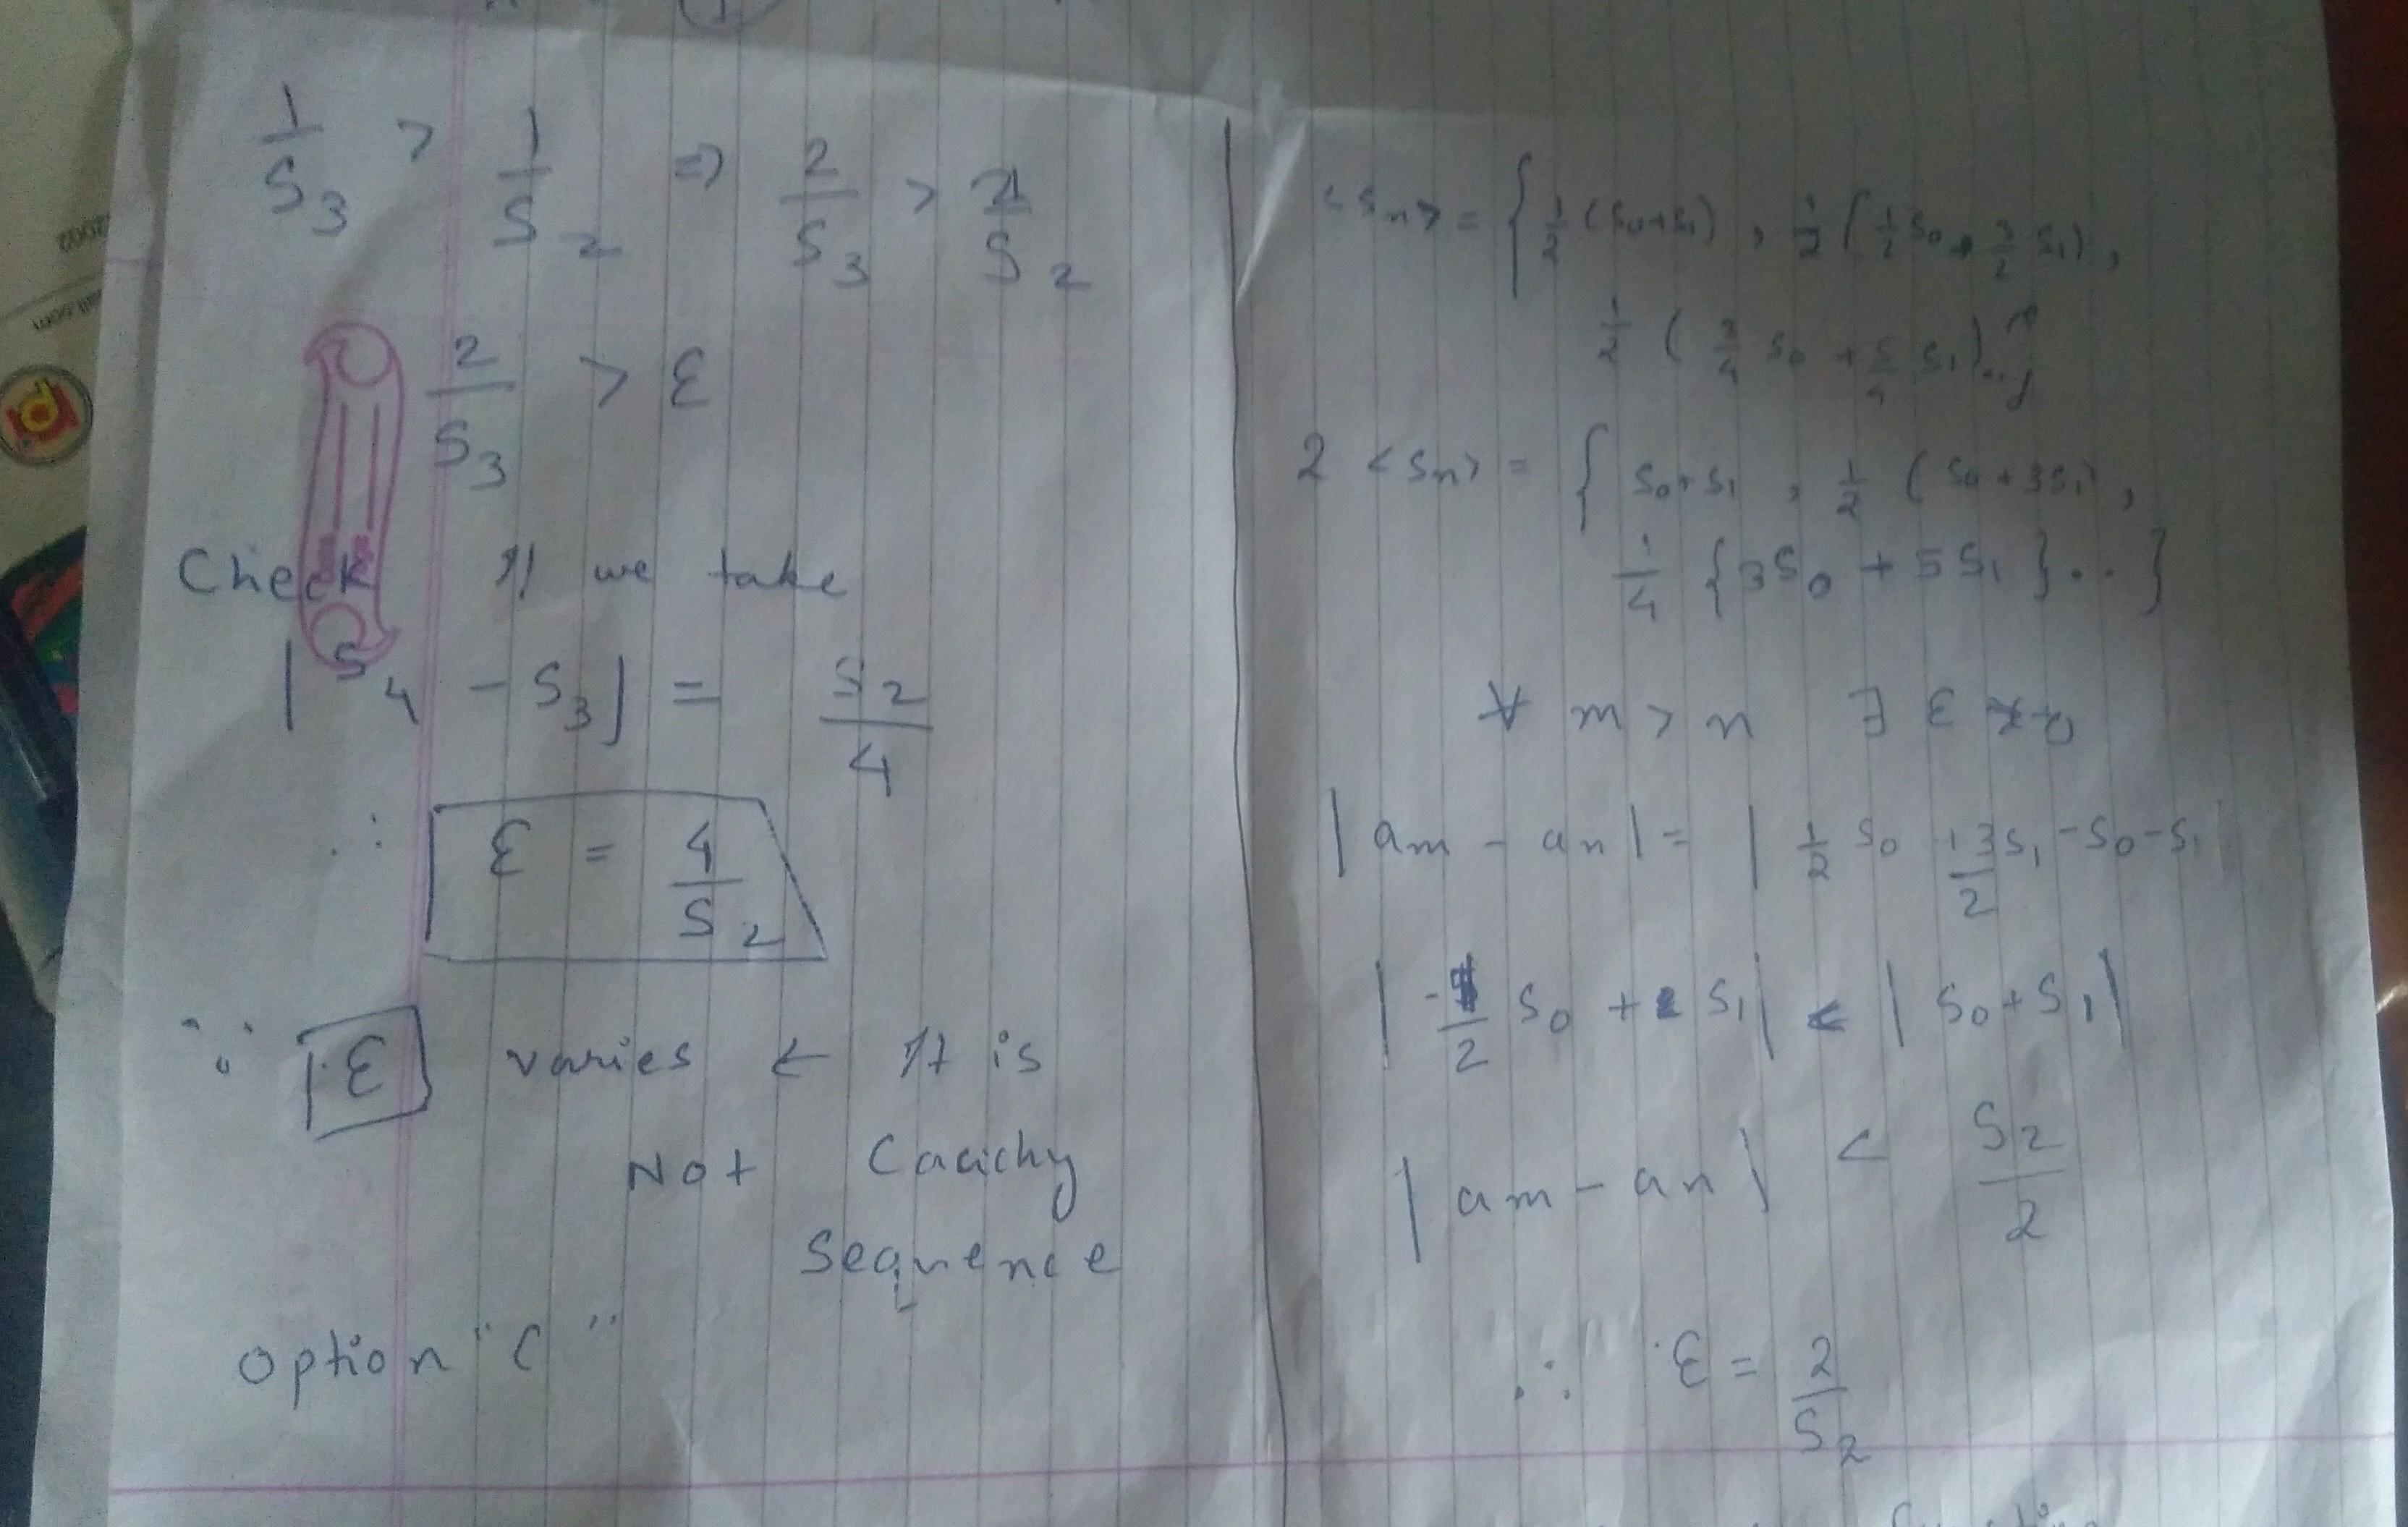 1/S₃ > 1/S₂ ⇒ 2/S₃ > 2/S₂
2/S₃ > ε
Check If we take
|S₄ - S₃| = S₂/4
∴ ε = 4/S₂
∵ ε varies ← It is
Not Cauchy
Sequence
option "C"
<Sn> = { 1/2 (S₀+S₁), 1/2 (1/2 S₀ + 3/2 S₁),
1/2 (3/4 S₀ + 5/4 S₁)..}
2 <Sn> = { S₀+S₁, 1/2 (S₀ + 3S₁),
1/4 {3S₀ + 5S₁}..}
∀ m > n ∃ ε
|am - an| = | 1/2 S₀ + 3/2 S₁ - S₀ - S₁
| -1/2 S₀ + S₁| < | S₀ + S₁|
|am - an| < S₂/2
∴ ε = 2/S₂